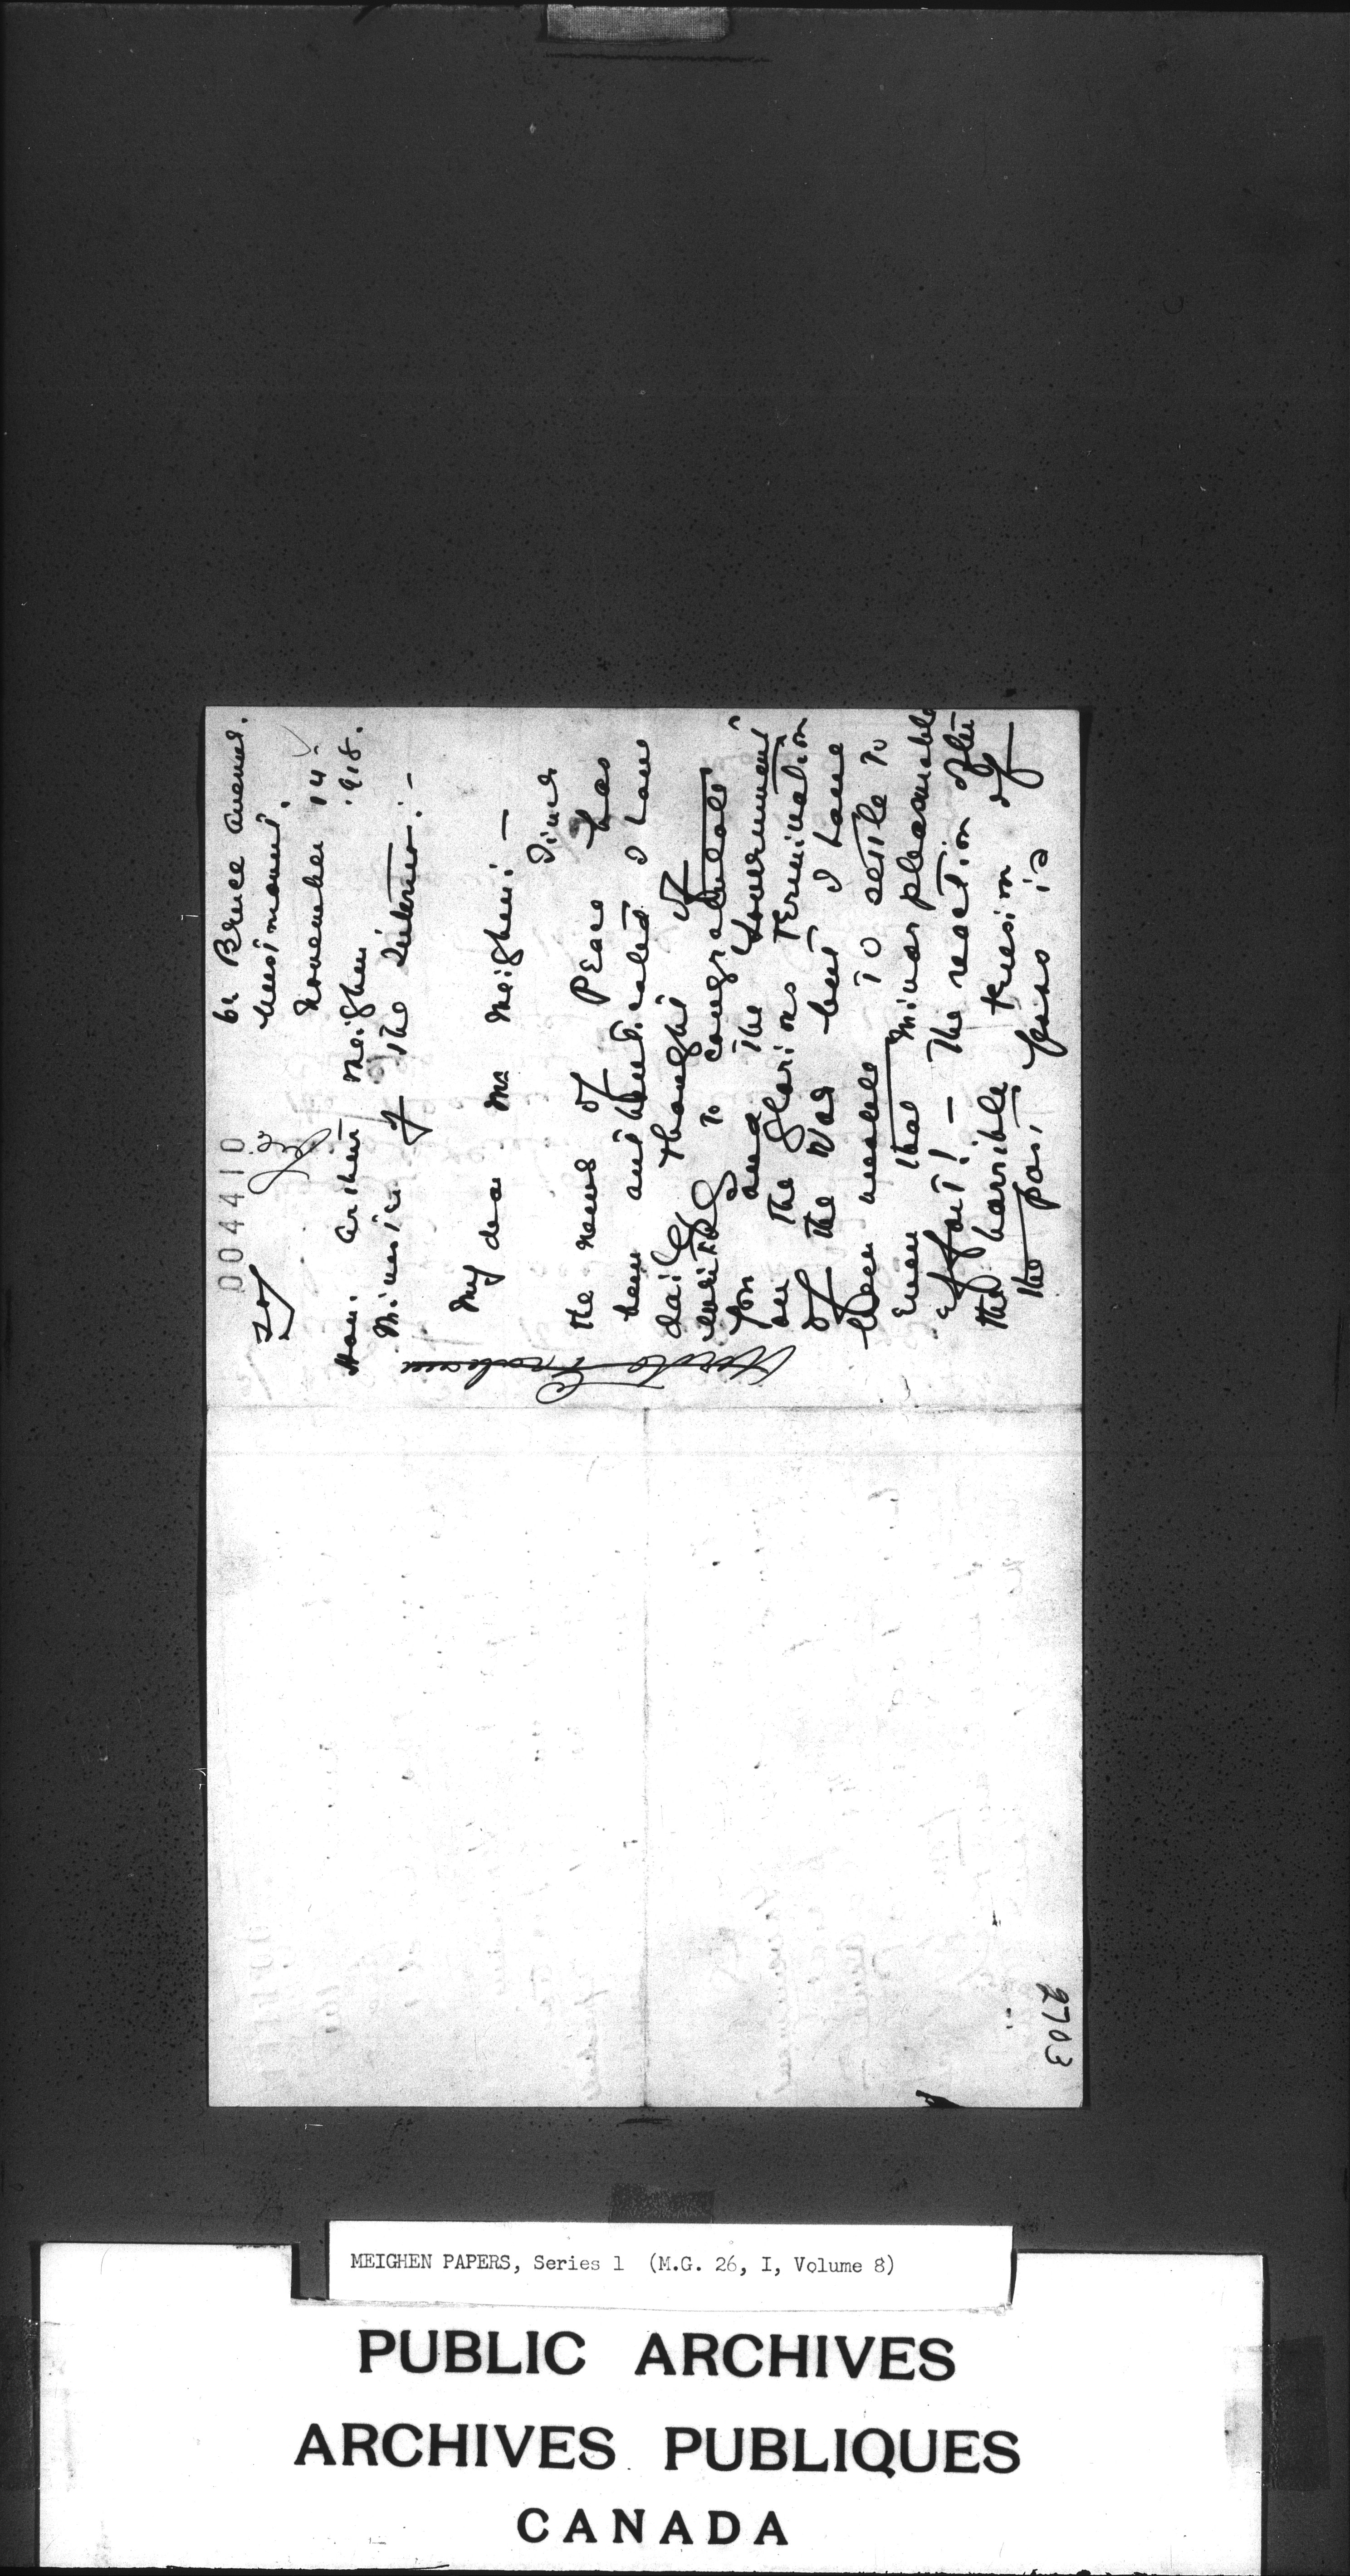 004410
61 Bruce Avenue.
Westmount.
November 14
1918.
Hon. Arthur Meighen
Minister of the Interior:-
My dear Mr Meighen:-
Since
the news of Peace has
been authenticated I have
daily thought of
writing to congratulate
you and the Government
on the glorious termination
of the War but I have
been unable to settle to
even that minor pleasurable
effort! - The reaction after
the horrible tension of
the past years is
2703
MEIGHEN PAPERS, Series 1 (M.G. 26, I, Volume 8)
PUBLIC ARCHIVES
ARCHIVES PUBLIQUES
CANADA